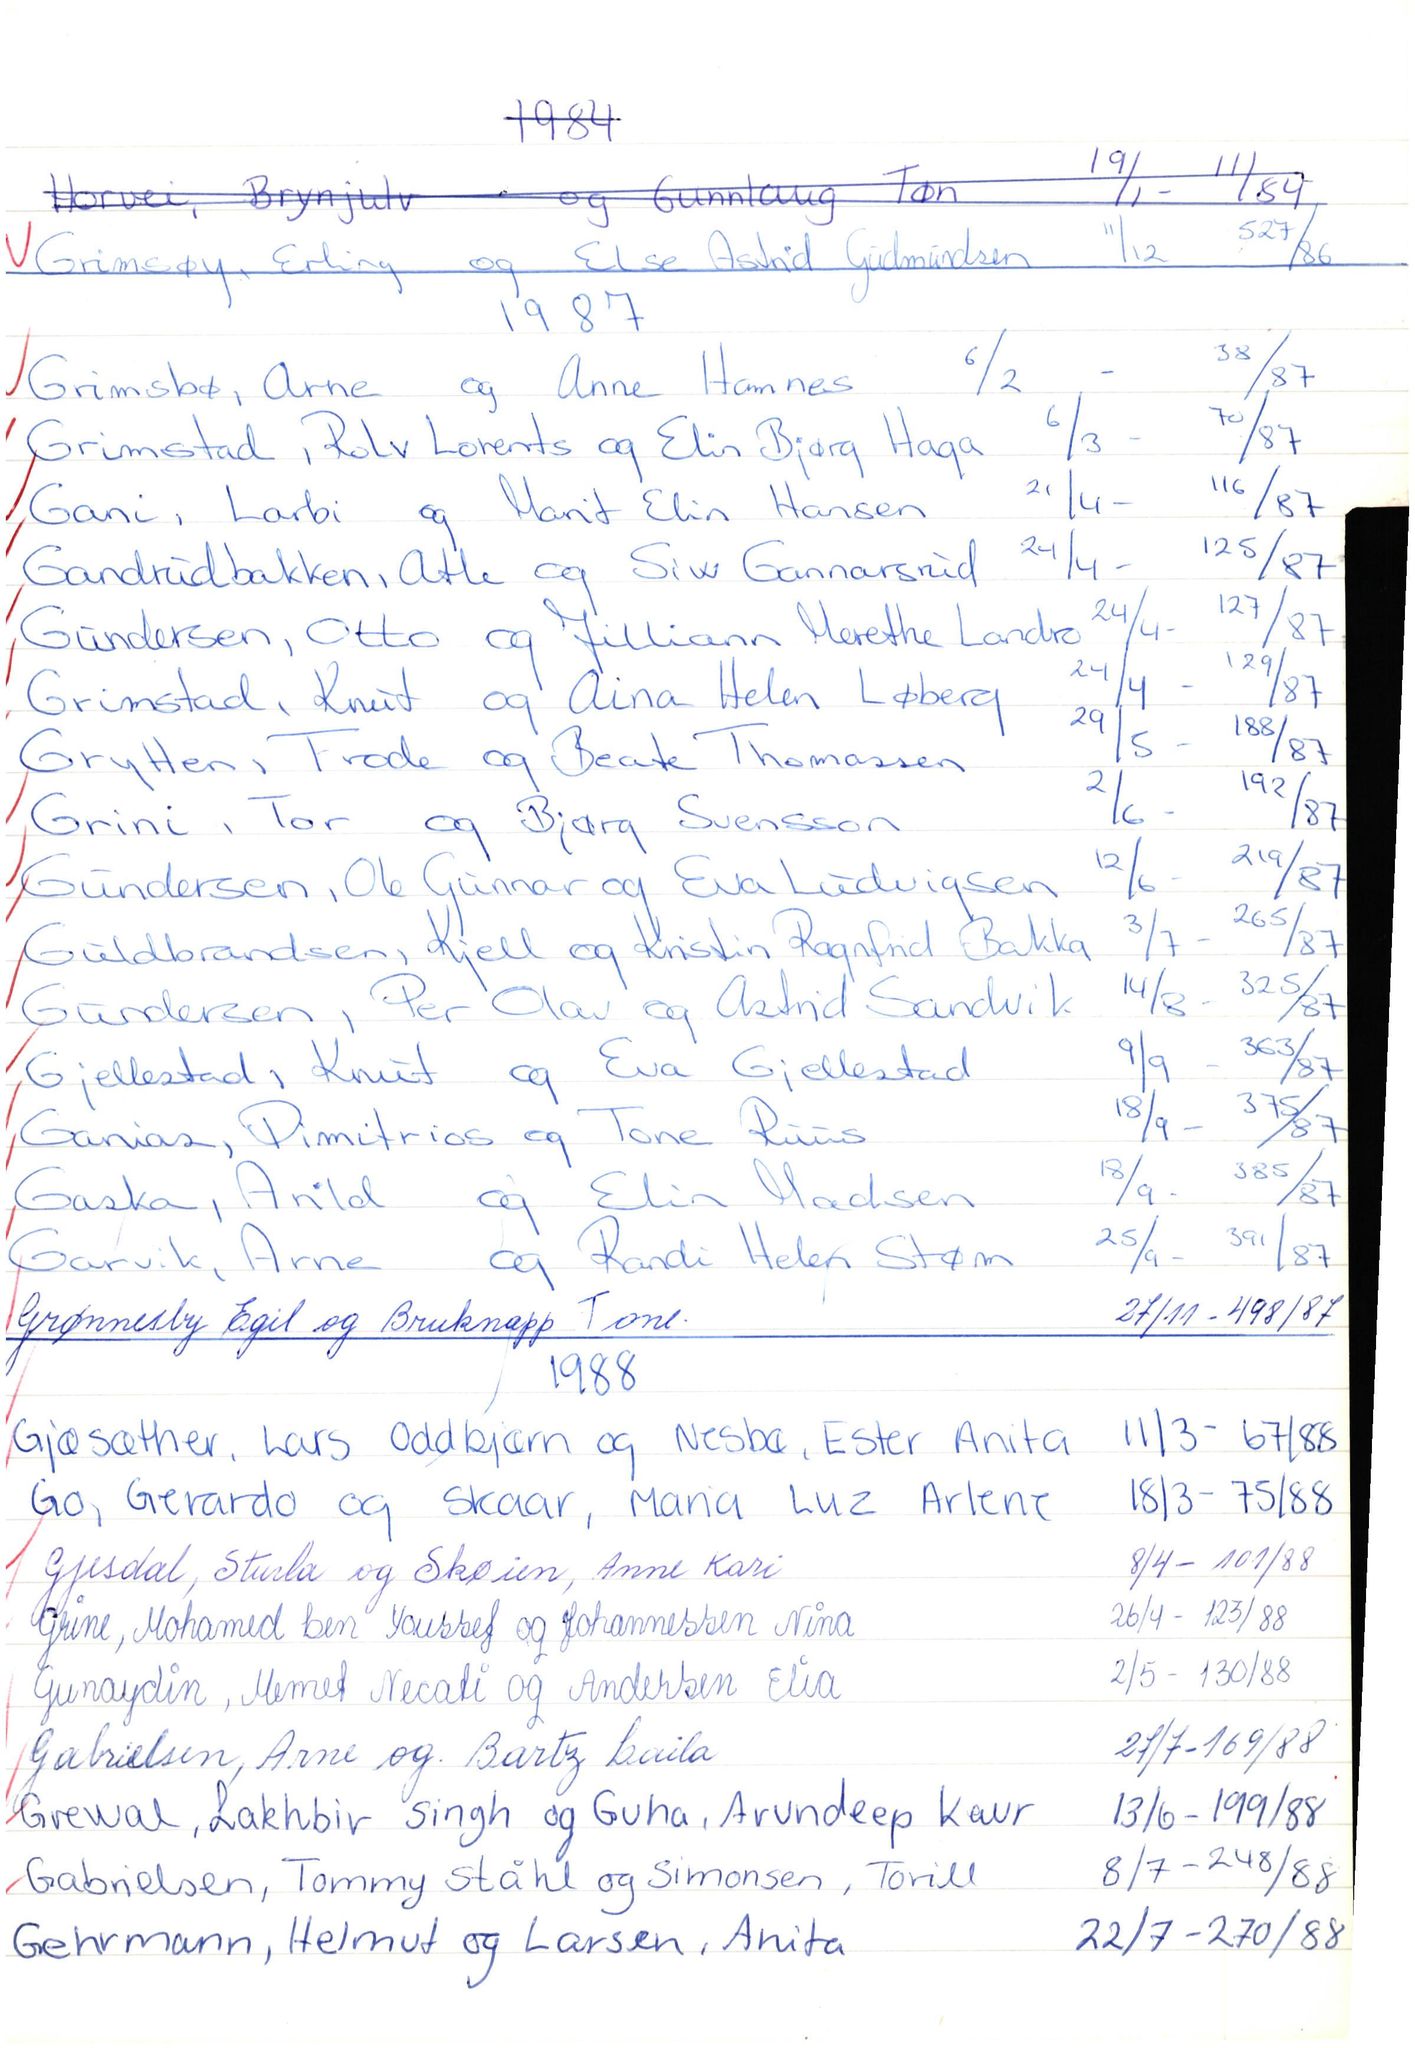 1984
Horvei, Brynjulv og Gunnlaug Tøn 19/1 - 11/84
Grimsøy, Erling og Else Astrid Gudmundsen 11/12 527/86
1987
Grimsbø, Arne og Anne Hamnes 6/2 - 38/87
Grimstad, Rolv Lorents og Elin Bjørg Haga 6/3 - 70/87
Gani, Larbi og Marit Elin Hansen 21/4 - 116/87
Gandrudbakken, Atle og Siw Gannarsrud 24/4 - 125/87
Gundersen, Otto og Jilliann Merethe Landro 24/4 - 127/87
Grimstad, Knut og Aina Helen Løberg 24/4 - 129/87
Grytten, Frode og Beate Thomassen 29/5 - 188/87
Grini, Tor og Bjørg Svensson 2/6 - 192/87
Gundersen, Ole Gunnar og Eva Ludvigsen 12/6 - 219/87
Guldbrandsen, Kjell og Kristin Ragnfrid Bakka 3/7 - 265/87
Gundersen, Per Olav og Astrid Sandvik 14/8 - 325/87
Gjellestad, Knut og Eva Gjellestad 9/9 - 363/87
Ganias, Dimitrios og Tone Ruus 18/9 - 375/87
Gaska, Arild og Elin Madsen 18/9 - 385/87
Garvik, Arne og Randi Helen Støm 25/9 - 391/87
Grønnesby Egil og Bruknapp Tone. 27/11 - 498/87
1988
Gjøsæther, Lars Oddbjørn og Nesbø, Ester Anita 11/3 - 67/88
Go, Gerardo og Skaar, Maria Luz Arlene 18/3 - 75/88
Gjesdal, Sturla og Skøien, Anne Kari 8/4 - 101/88
Grine, Mohamed ben Youssef og Johannessen Nina 26/4 - 123/88
Gunaydin, Memet Necati og Andersen Elia 2/5 - 130/88
Gabrielsen, Arne og. Bartz Laila 27/7 - 169/88
Grewal, Lakhbir Singh og Guha, Arundeep Kaur 13/6 - 199/88
Gabrielsen, Tommy Ståhl og Simonsen, Torill 8/7 - 248/88
Gehrmann, Helmut og Larsen, Anita 22/7 - 270/88